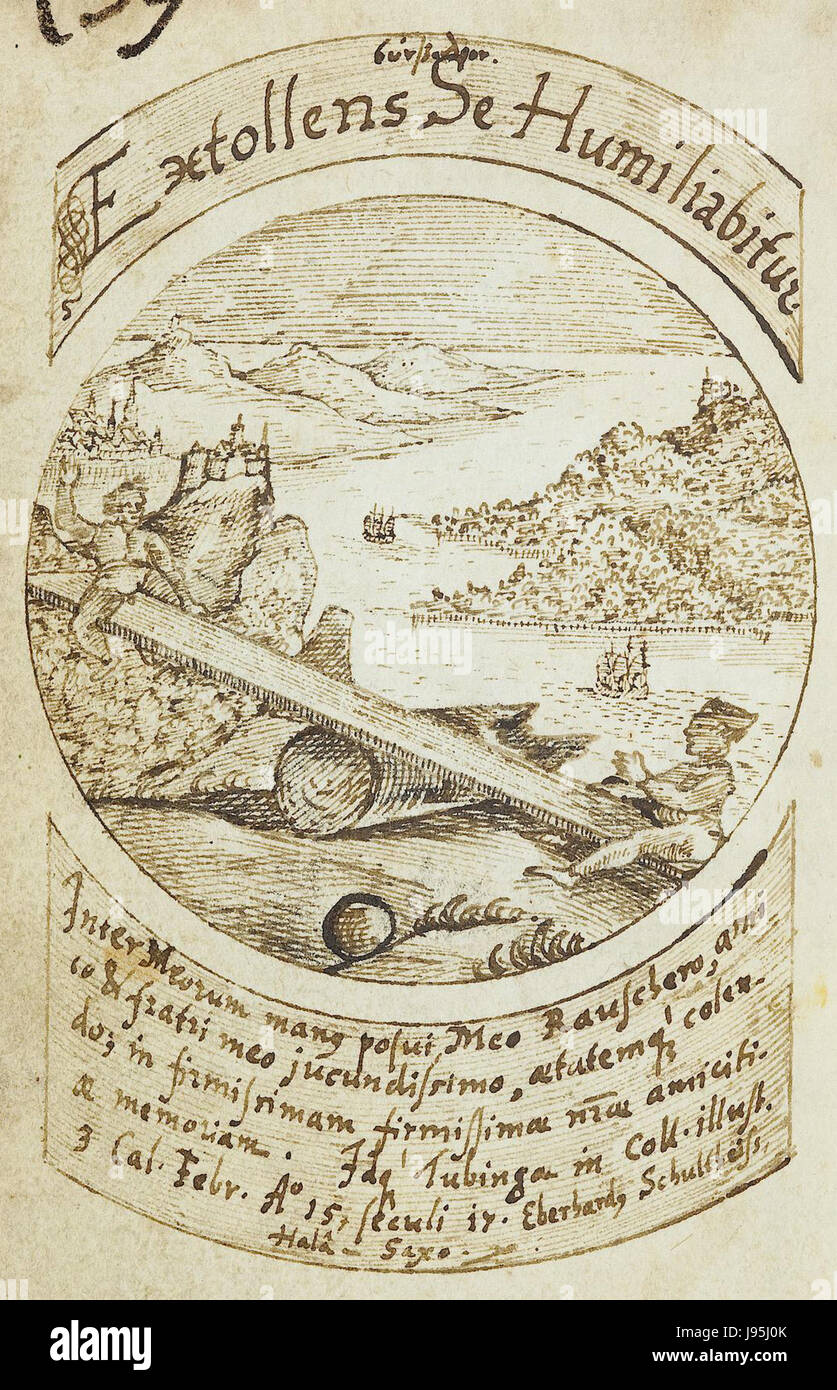 Extollens Se Humiliabitur.
Inter Meorum manꝰ posui, Meo Rauschero, ami
co & fratri meo jucundissimo, ætatemq́ꝫ colen-
doꝫ in firmissimam firmissimæ nr̃æ amiciti-
æ memoriam. Idq́ Tubingæ in Coll. illust.
3 Cal. Febr. Aº 15, seculi 17. Eberhardꝰ Schultheiss,
Halâ - Saxo.
alamy
Image ID: J95J0K
www.alamy.com